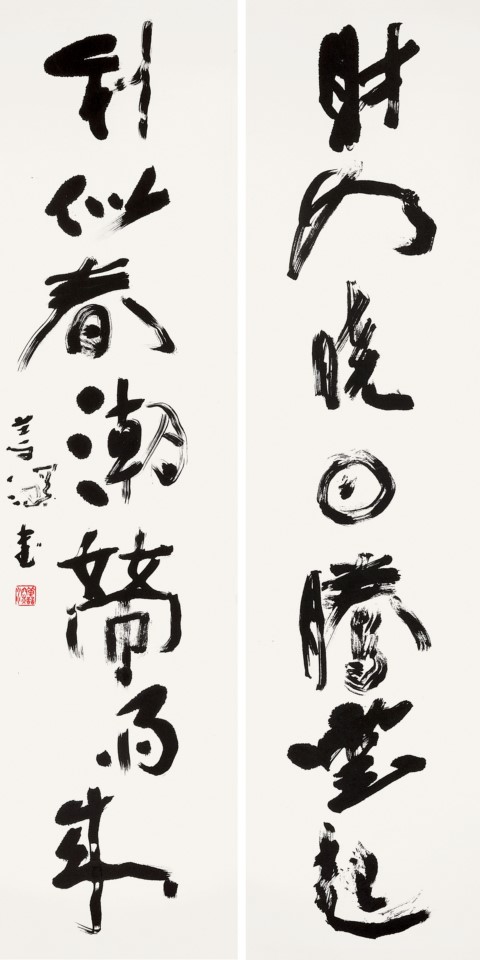 財如曉日騰雲起
利似春潮帶雨來
書